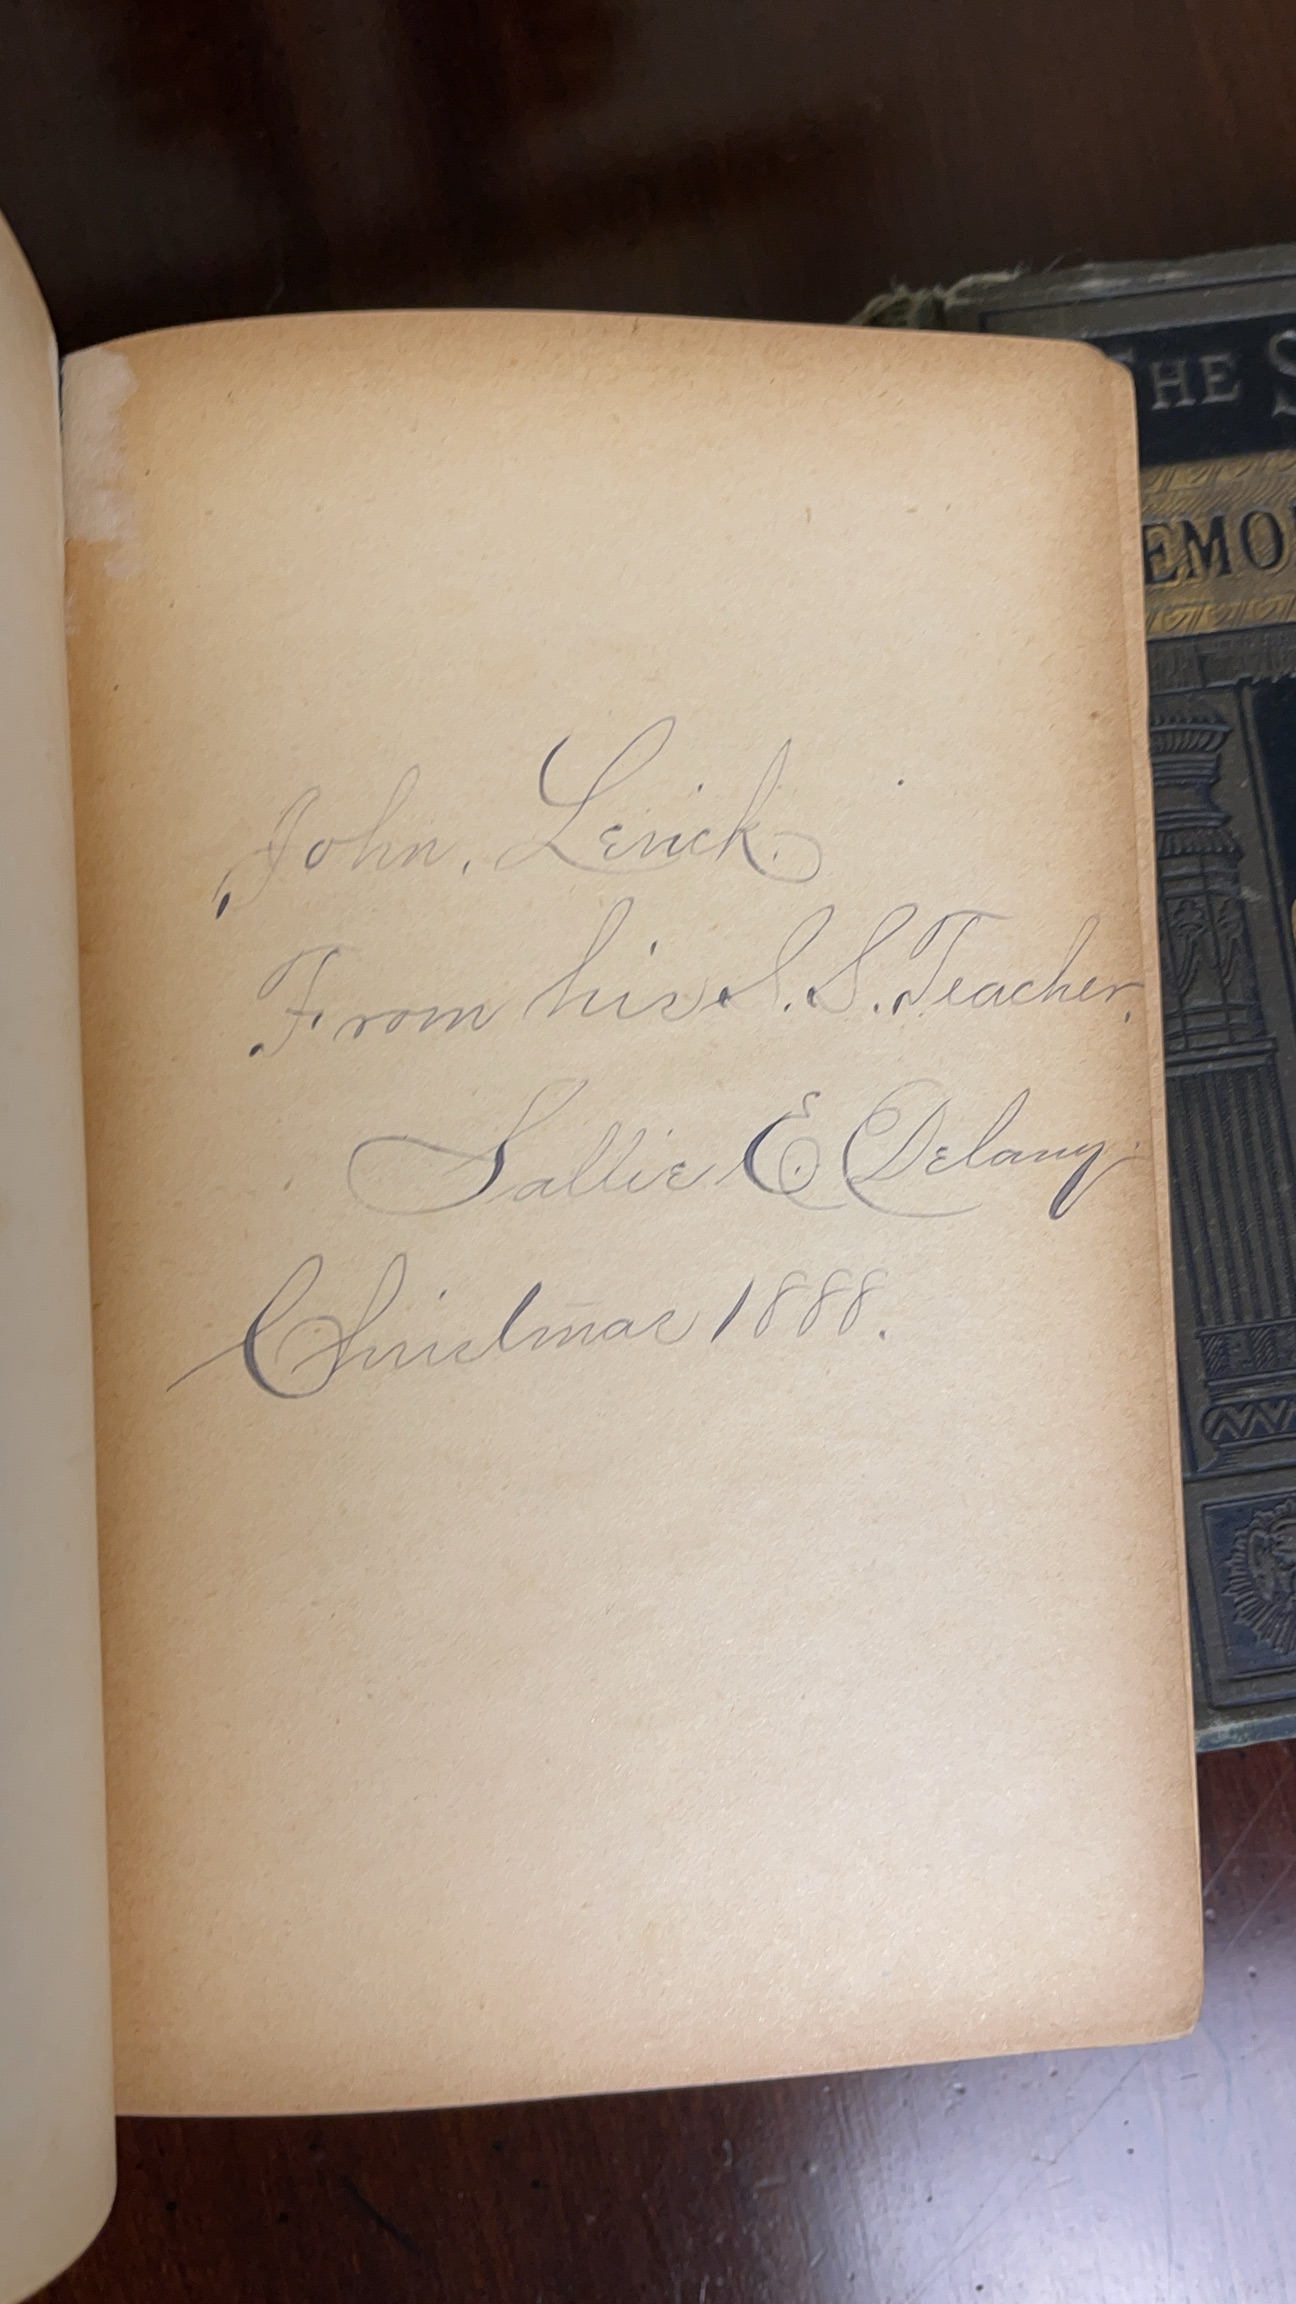 John. Lerick.
From his S. S. Teacher.
Sallie E. Delany.
Christmas 1888.
THE S
EMO